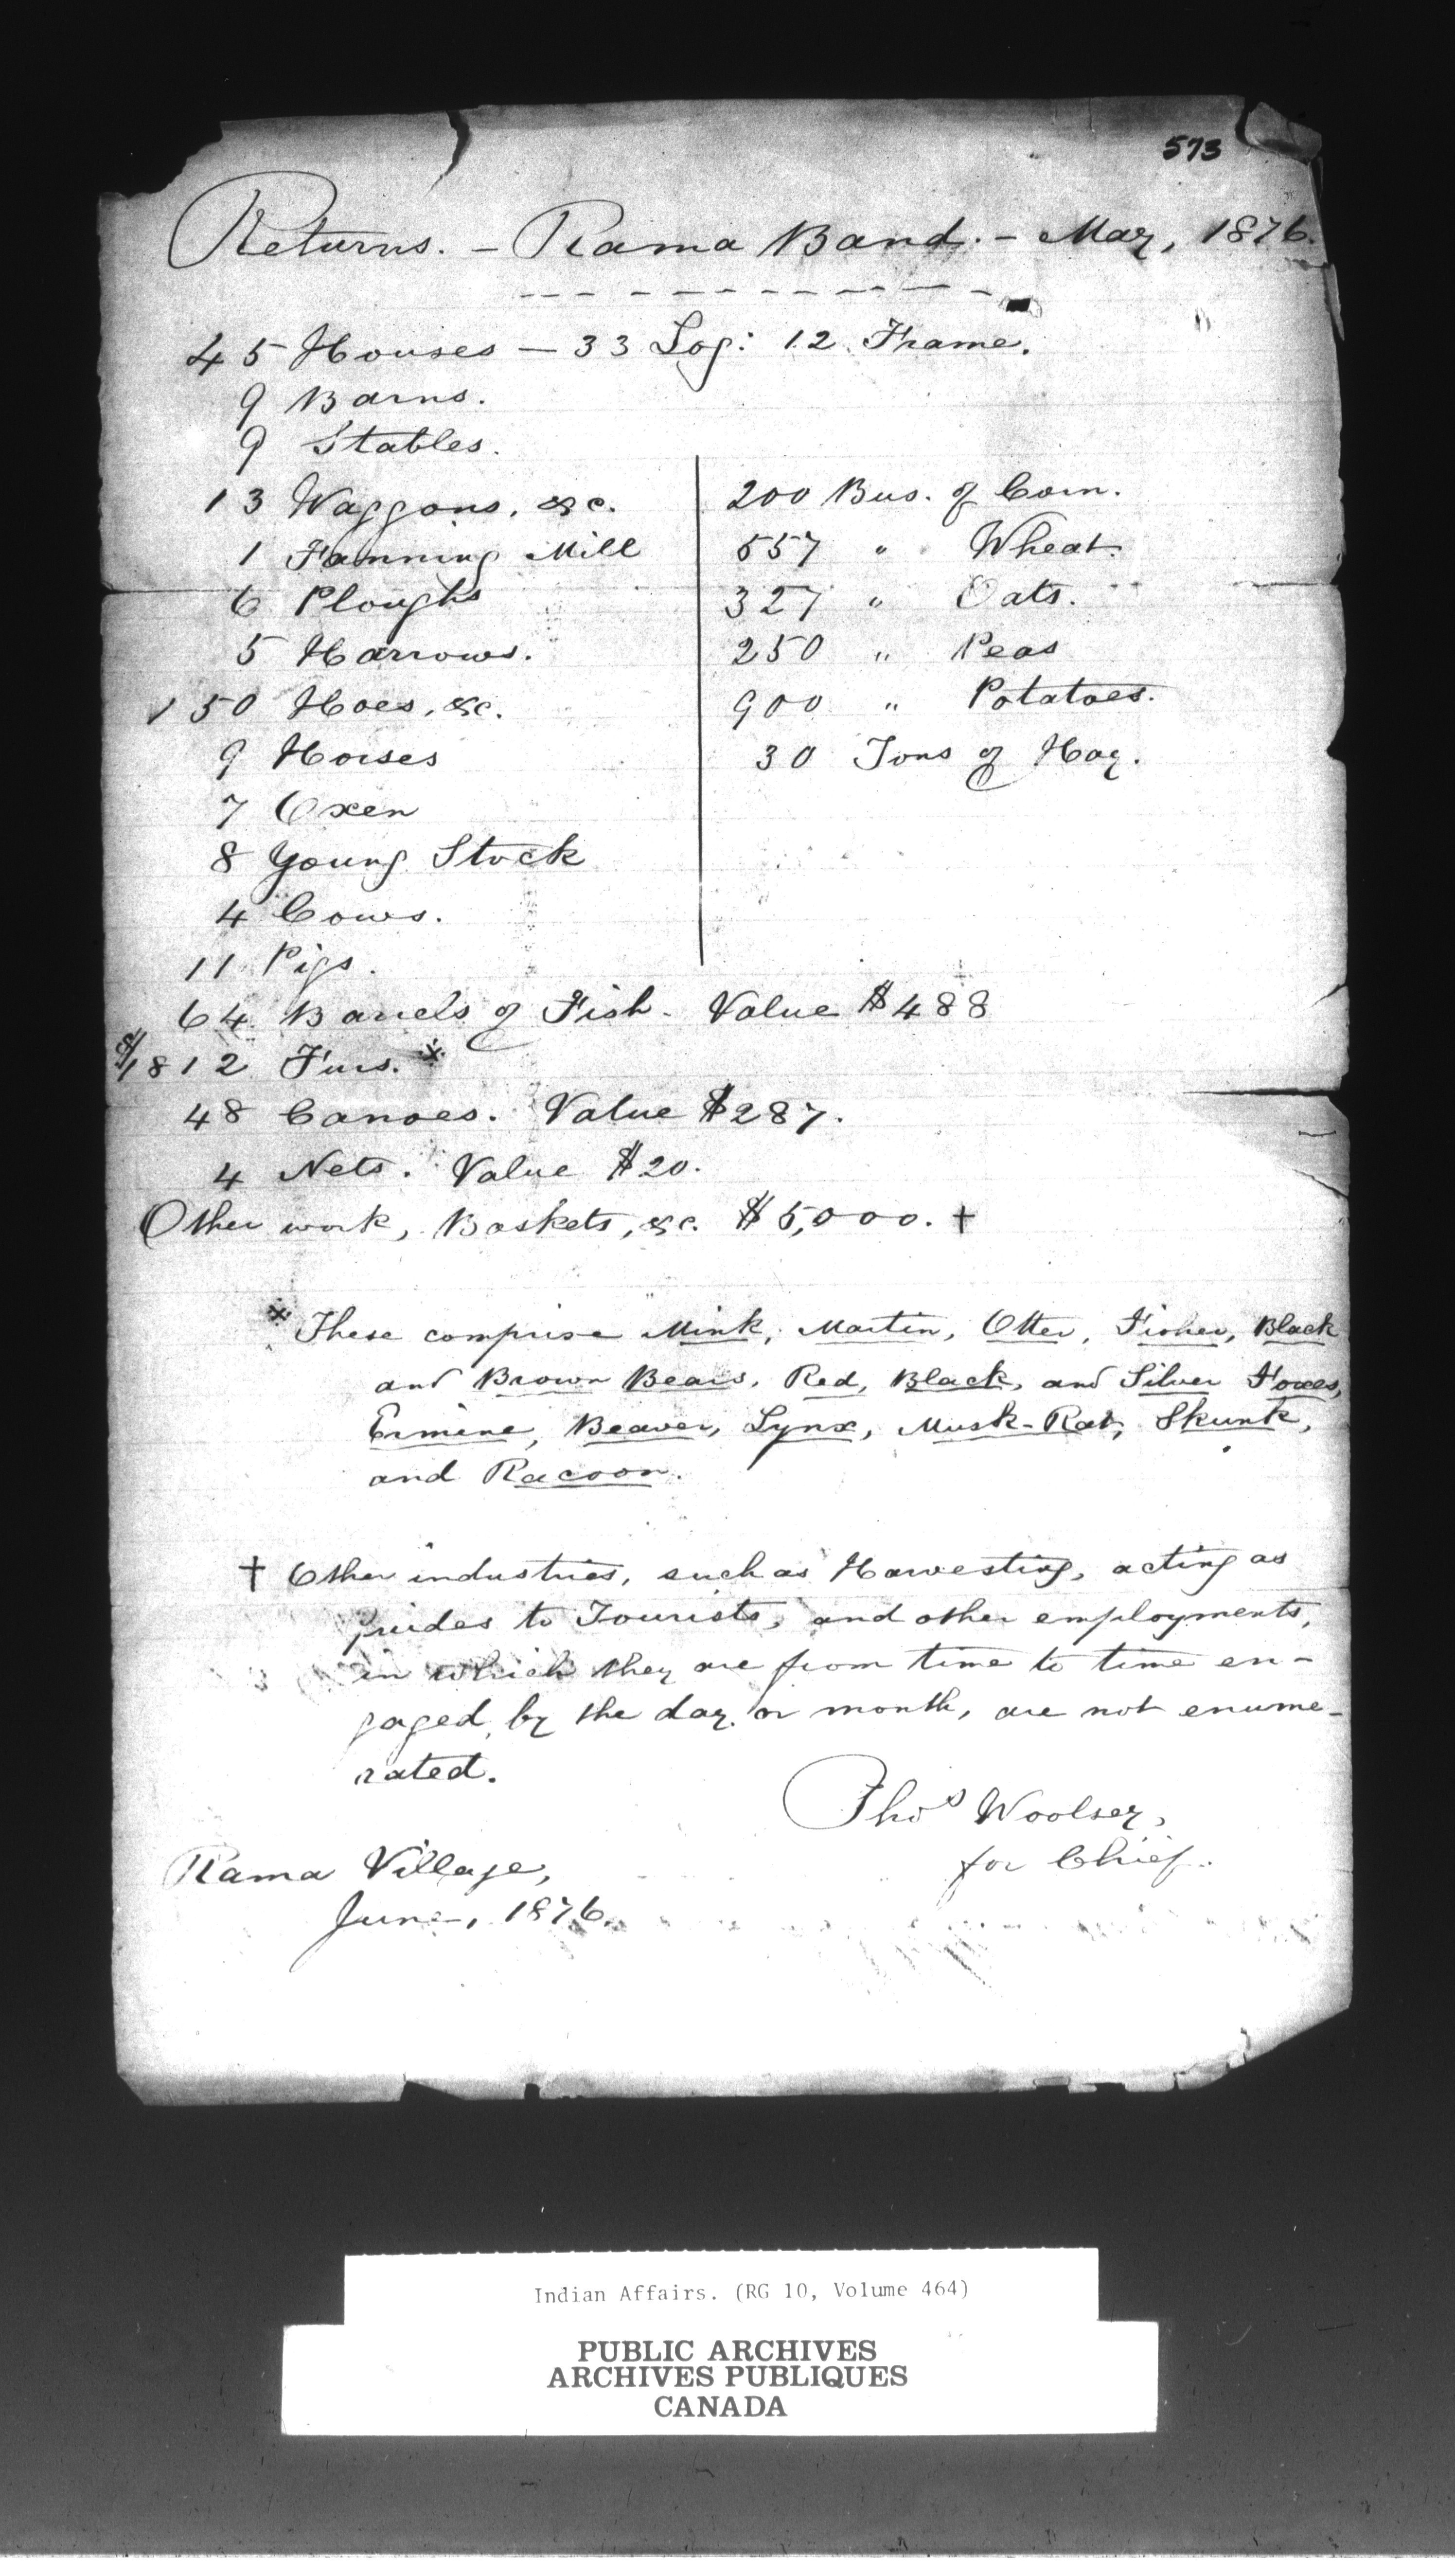 573
Returns. - Rama Band. - May, 1876.
45 Houses - 33 Log: 12 Frame.
9 Barns.
9 Stables.
13 Waggons, &c.
1 Fanning Mill
6 Ploughs
5 Harrows.
150 Hoes, &c.
9 Horses
7 Oxen
8 Young Stock
4 Cows.
11 Pigs.
200 Bus. of Corn.
557 " Wheat.
327 " Oats.
250 " Peas
900 " Potatoes.
30 Tons of Hay.
64 Barrels of Fish - Value $488
$1812 Furs. *
48 Canoes. Value $287.
4 Nets. Value $20.
Other work, Baskets, &c. $5,000. †
* These comprise Mink, Martin, Otter, Fisher, Black
and Brown Bears, Red, Black, and Silver Foxes,
Ermine, Beaver, Lynx, Musk-Rat, Skunk,
and Racoon.
† Other industries, such as Harvesting, acting as
guides to Tourists, and other employments,
in which they are from time to time en-
gaged, by the day or month, are not enume-
rated.
Thos Woolsey,
for Chief.
Rama Village,
June, 1876.
Indian Affairs. (RG 10, Volume 464)
PUBLIC ARCHIVES
ARCHIVES PUBLIQUES
CANADA